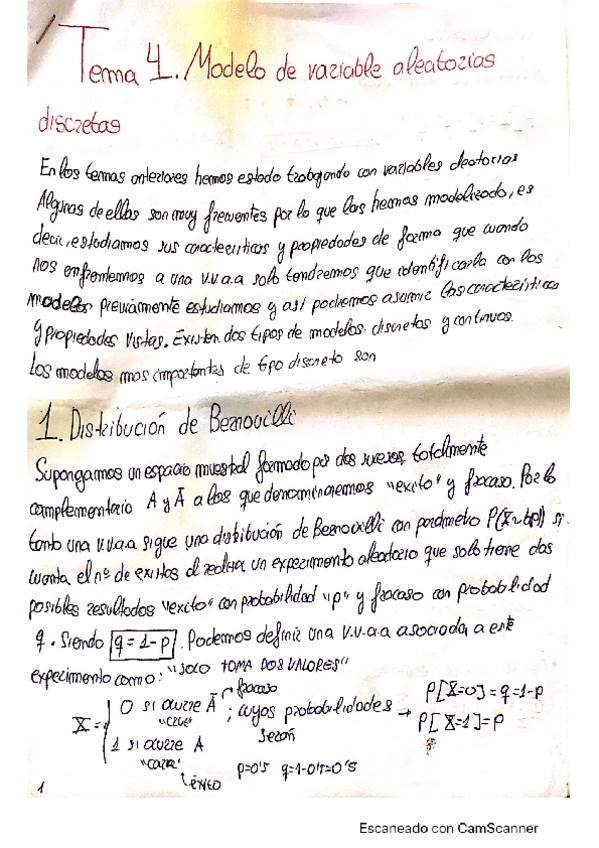 Tema 4. Modelo de variable aleatorias
discretas
En los temas anteriores hemos estado trabajando con variables aleatorias
Algunas de ellas son muy frecuentes por lo que las hemos modelizado, es
decir, estudiamos sus caracteristicas y propiedades de forma que cuando
nos enfrentemos a una v.v.a.a solo tendremos que identificarla con los
modelos previamente estudiamos y así podremos asumir las características
y propiedades vistas. Existen dos tipos de modelos, discretos y continuos.
Los modelos mas importantes de tipo discreto son
1. Distribución de Bernouilli
Supongamos un espacio muestral formado por dos sucesos totalmente
complementario A y Ā a los que denominaremos "exito" y fracaso. Por lo
tanto una v.v.a.a sigue una distribución de Bernouilli con parámetro si
cuenta el nº de exitos al realizar un experimento aleatorio que solo tiene dos
posibles resultados "exito" con probabilidad "p" y fracaso con probabilidad
q. Siendo q = 1-p. Podemos definir una v.v.a.a asociada a este
experimento como: "SOLO TOMA DOS VALORES"
X = { 0 si ocurre Ā → fracaso ; cuyos probabilidades → P[X=0] = q = 1-p
"CRUZ" seran P[X=1] = P
1 si ocurre A
"CARA" p=0'5 q=1-0'5=0'5
↳ éxito
1
Escaneado con CamScanner